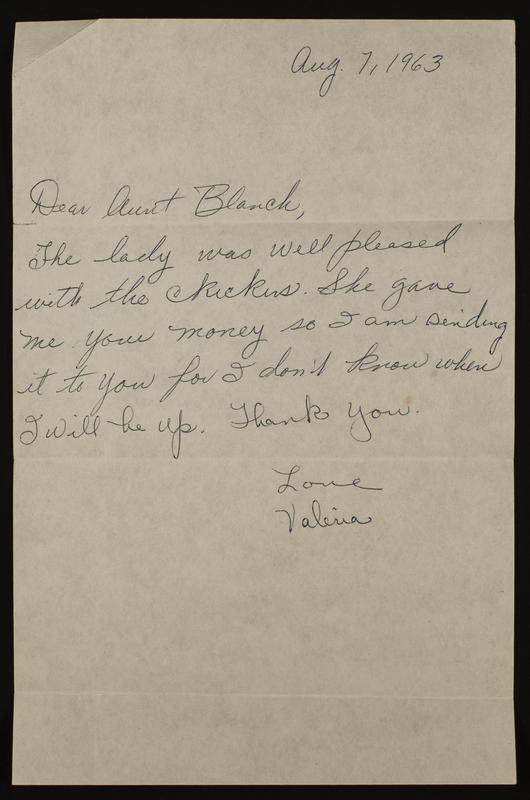 Aug. 7, 1963
Dear Aunt Blanch,
The lady was well pleased
with the chickens. She gave
me your money so I am sending
it to you for I don't know when
I will be up. Thank you.
Love
Valeria